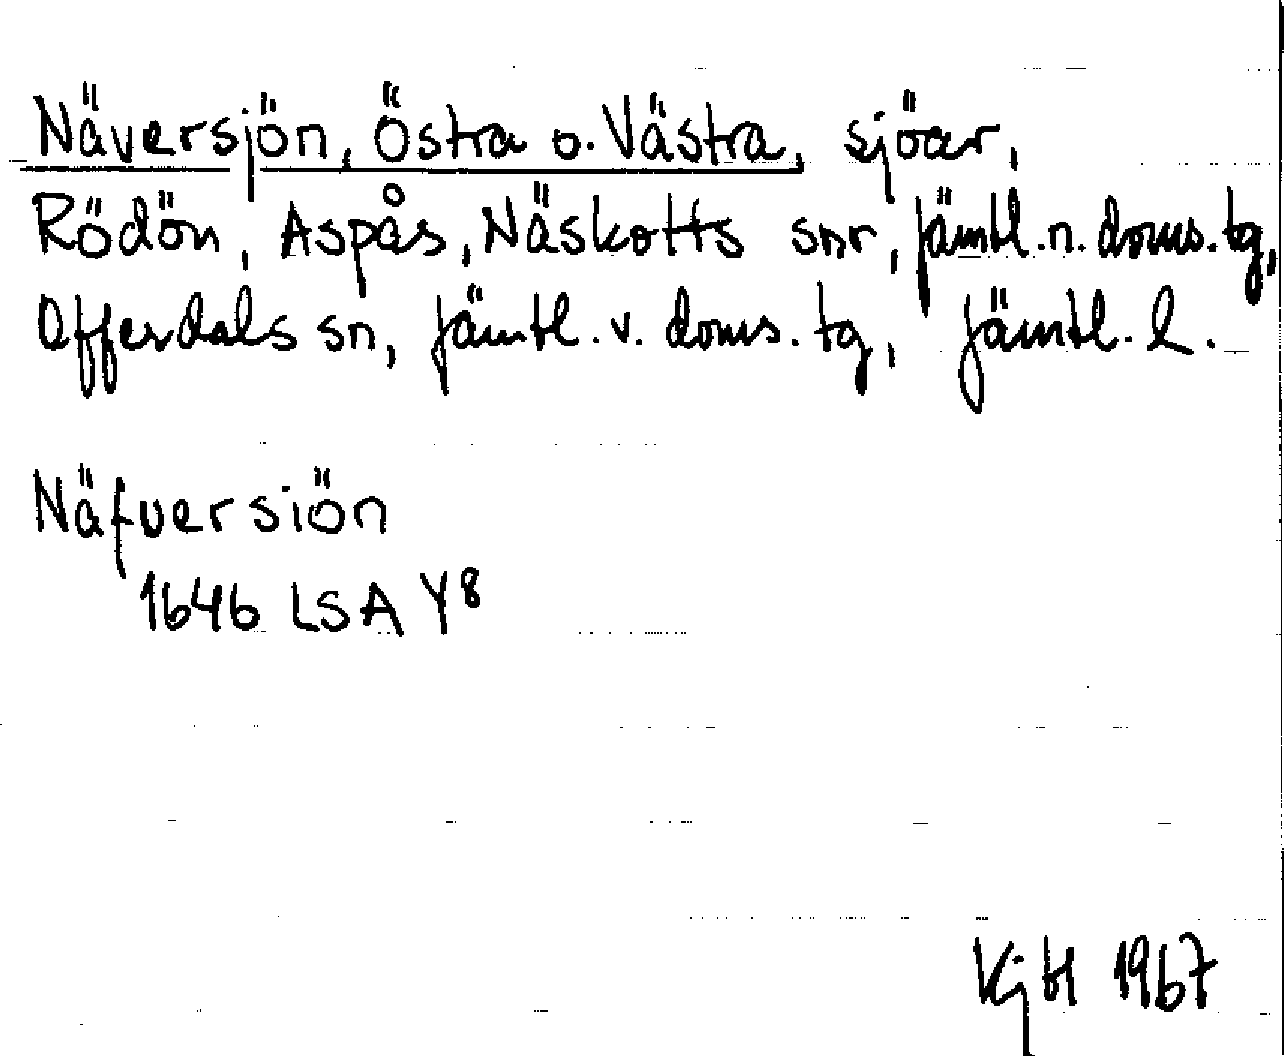 Näversjön, Östra o. Västra, sjöar,
Rödön, Aspås, Näskotts snr, Jämtl. n. doms. tg,
Offerdals sn, Jämtl. v. doms. tg, Jämtl. l.
Näfversiön
1646 LSA Y8
KjH 1967